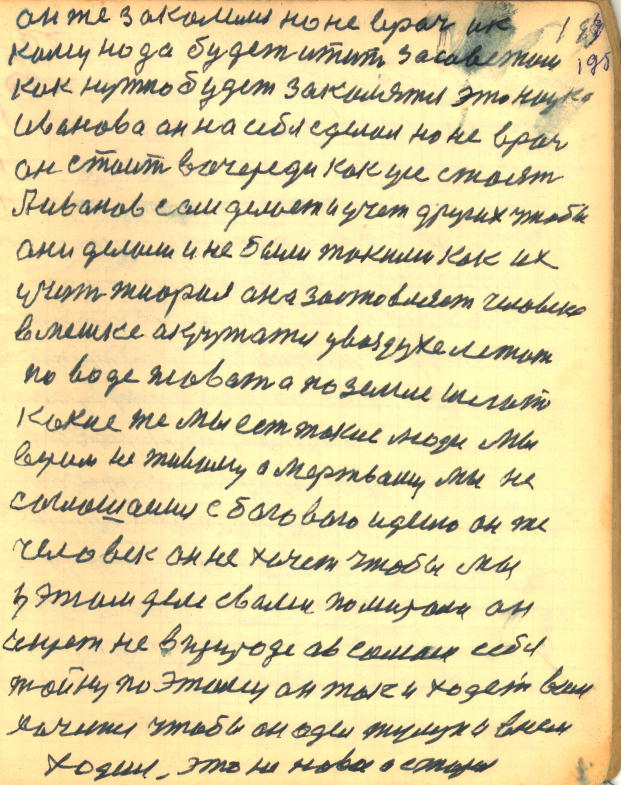 он же заколили но не врач ик
кому нода будет итит засаветом
как нужно будет заколятся это наука
Иванова он на себя сделал но не врач
он стоит вочереди как усе стоят
А Иванов сам делает и учет других чтобы
они делали и не были такими как их
учит тиория она заставляет человека
вмешке окутати увоздухе летат
по воде плават а по земле
какие же мы ест такие люди мы
верим не живому а мертваму мы не
соглошаимся с багового идеию он же
человек он не хочет чтобы мы
у этом деле сваем помирали он
не вприроде а всамам себя
тайну поэтаму он так и ходет вам
хочится чтобы он одел тулуп и внем
ходил, это ни новое а старае